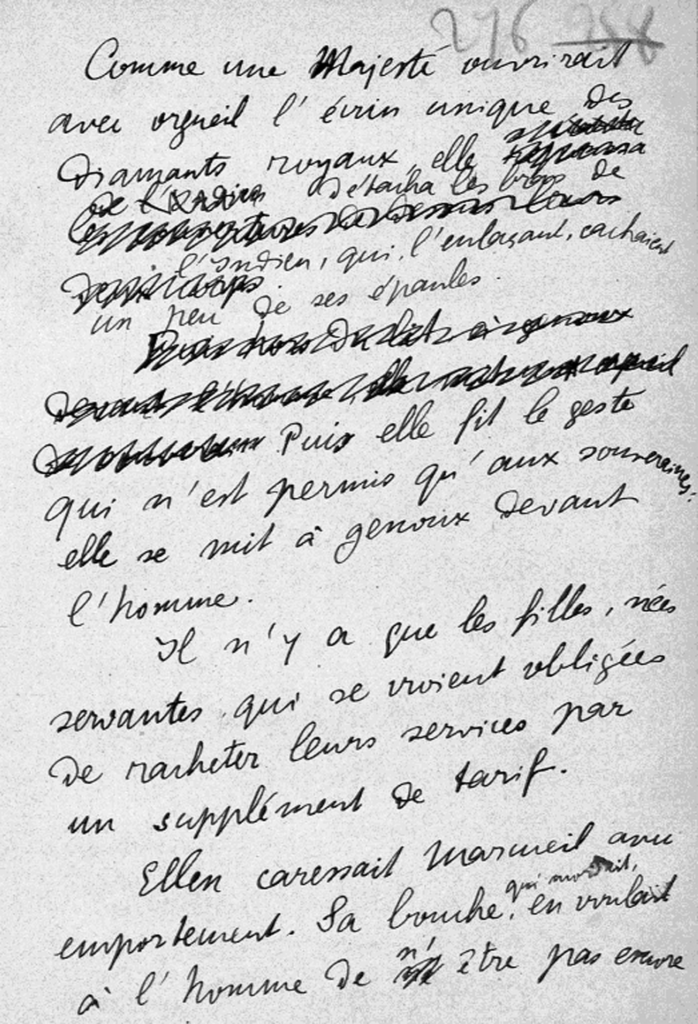 276
Comme une Majesté ouvrirait
avec orgueil l'écrin unique des
diamants royaux, elle
détacha les bras de
l'Indien, qui, l'enlaçant, cachaient
un peu de ses épaules.
Puis elle fit le geste
qui n'est permis qu'aux souveraines:
elle se mit à genoux devant
l'homme.
Il n'y a que les filles, nées
servantes qui se croient obligées
de racheter leurs services par
un supplément de tarif.
Ellen caressait Marcueil avec
emportement. Sa bouche, qui mordait, en voulait
à l'homme de n'être pas encore